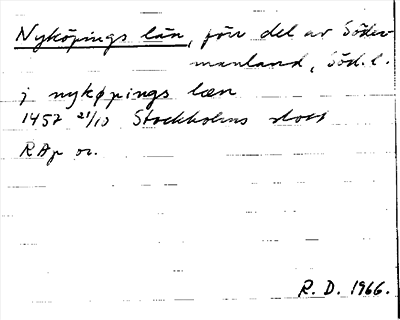 Nyköpings län, förr del av Söder
manland, Söd. l.
j nykøpings læn
1457 21/10 Stockholms slott
RAp or.
R. D. 1966.